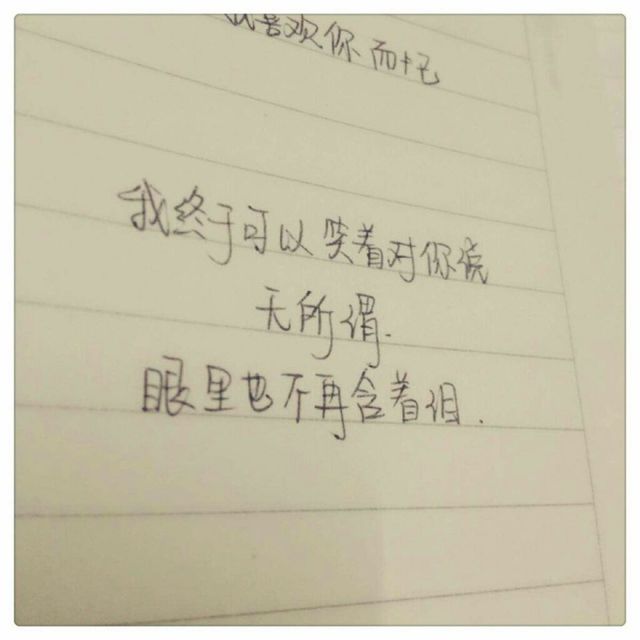 我喜欢你而忆
我终于可以笑着对你说
无所谓.
眼里也不再含着泪.